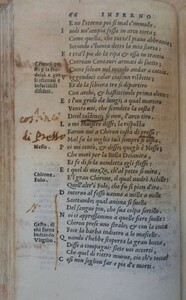 66 INFERNO
E ne l'eterna poi si mal c'immolle.
I vidi un'ampia fossa in arco torta,
Come quella, che tutto'l piano abbraccia,
Secondo c'havea detto la mia scorta:
E tra'l piè de la ripa & essa in traccia
Correan Centauri armati di saette,
Come solean nel mondo andare a caccia.
ciascun ristette,
E de la schiera tre si dipartiro
prima elette:
E l'un gridò da lungi, a qual martiro
Venite voi, che scendete la costa?
Ditel costinci; se non, l'arco tiro.
costinci
L o mio Maestro disse, la risposta
Farem noi a Chiron costà di presso:
di presso
Mal fu la voglia tua sempre si tosta.
Nesso.
disse, quegli è Nesso,
Che morì per la bella Deianira,
E fe di se la vendetta egli stesso:
Chirone,
Folo.
E quel di mezzo, ch'al petto si mira,
E'l gran Chirone, il qual nudrì Achille:
Quell'altr'è Folo, che fu si pien d'ira.
D'intorno al fosso vanno a mille a mille
Saettando qual anima si svelle
Del sangue più, che sua colpa sortille.
N oi ci appressammo a quelle fiere snelle:
Chiron prese uno strale, e con la cocca
Fece la barba indietro a le mascelle.
Virgilio.
Q uando s'hebbe scoperta la gran bocca,
Disse a i compagni, siete voi accorti,
Che quel di rietro move ciò, ch'ei tocca?
C osi non soglion far i piè d'i morti.